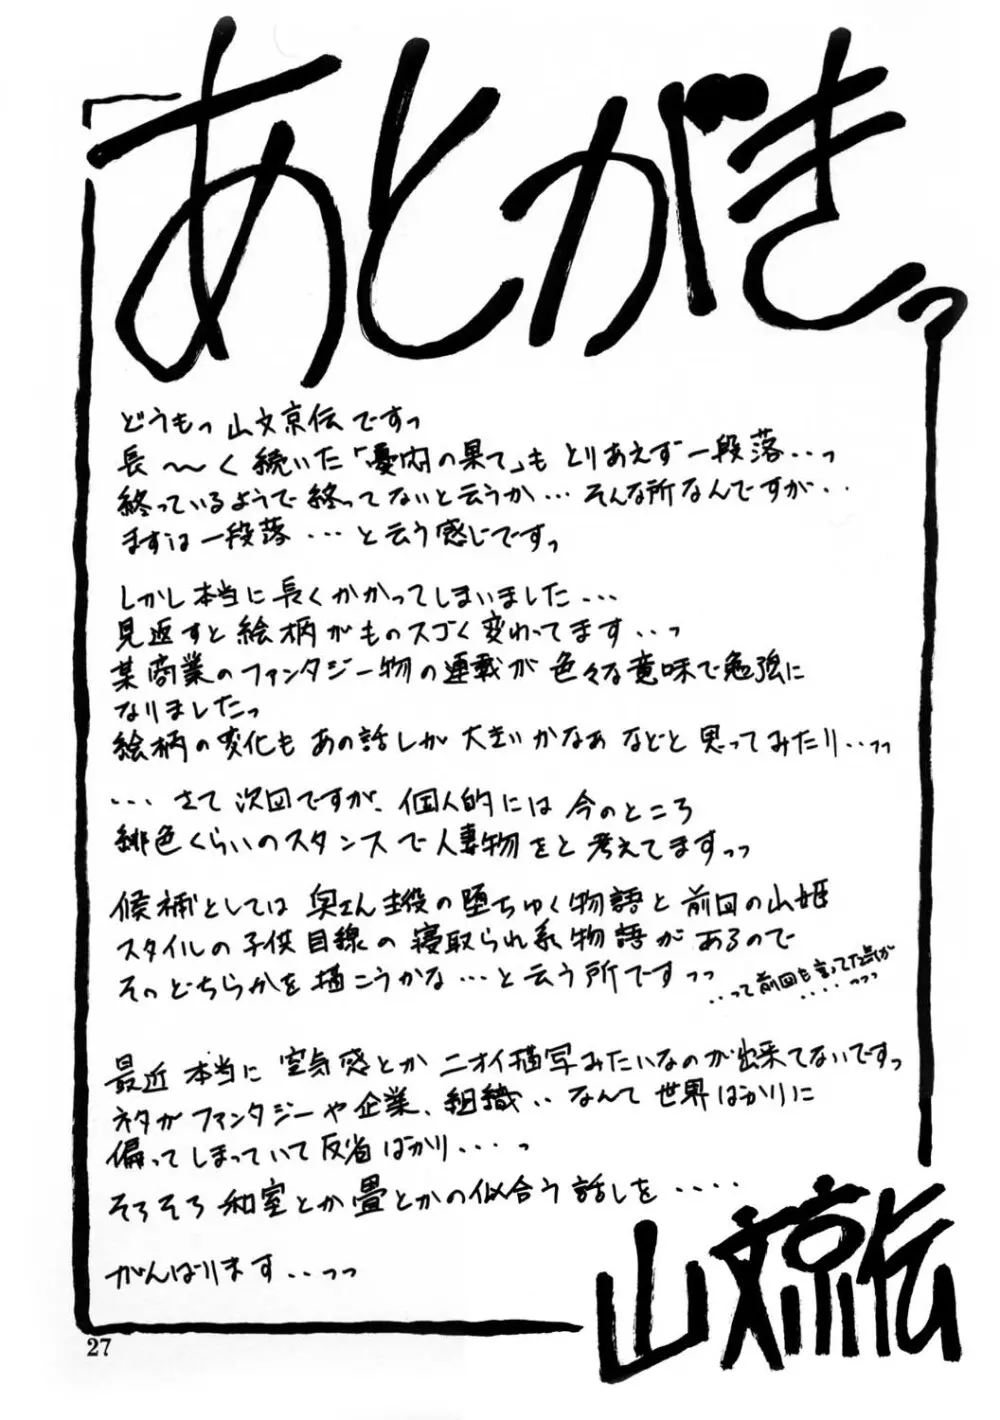 あとがきっ
どうもっ 山文京伝ですっ
長〜〜く続いた「憂悶の果て」も とりあえず一段落‥っ
終っているようで終ってないと云うか… そんな所なんですが‥
まずは一段落…と云う感じですっ
しかし本当に長くかかってしまいました…
見返すと絵柄がものスゴく変わってます‥っ
某商業のファンタジー物の連載が色々な意味で勉強に
なりましたっ
絵柄の変化もあの話しが大きいかなぁなどと思ってみたり‥っっ
…さて次回ですが、個人的には今のところ
緋色くらいのスタンスで人妻物をと考えてますっっ
候補としては奥さん主役の堕ちゆく物語と前回の山姫
スタイルの子供目線の寝取られ系物語があるので
そのどちらかを描こうかな…と云う所ですっっ
‥って前回も言ってた気が
‥‥っっっ
最近本当に空気感とかニオイ描写みたいなのが出来てないですっ
ネタがファンタジーや企業、組織‥なんて世界ばかりに
偏ってしまっていて反省ばかり‥‥っ
そろそろ和室とか畳とかの似合う話しを‥‥
がんばります‥っっ
山文京伝
27